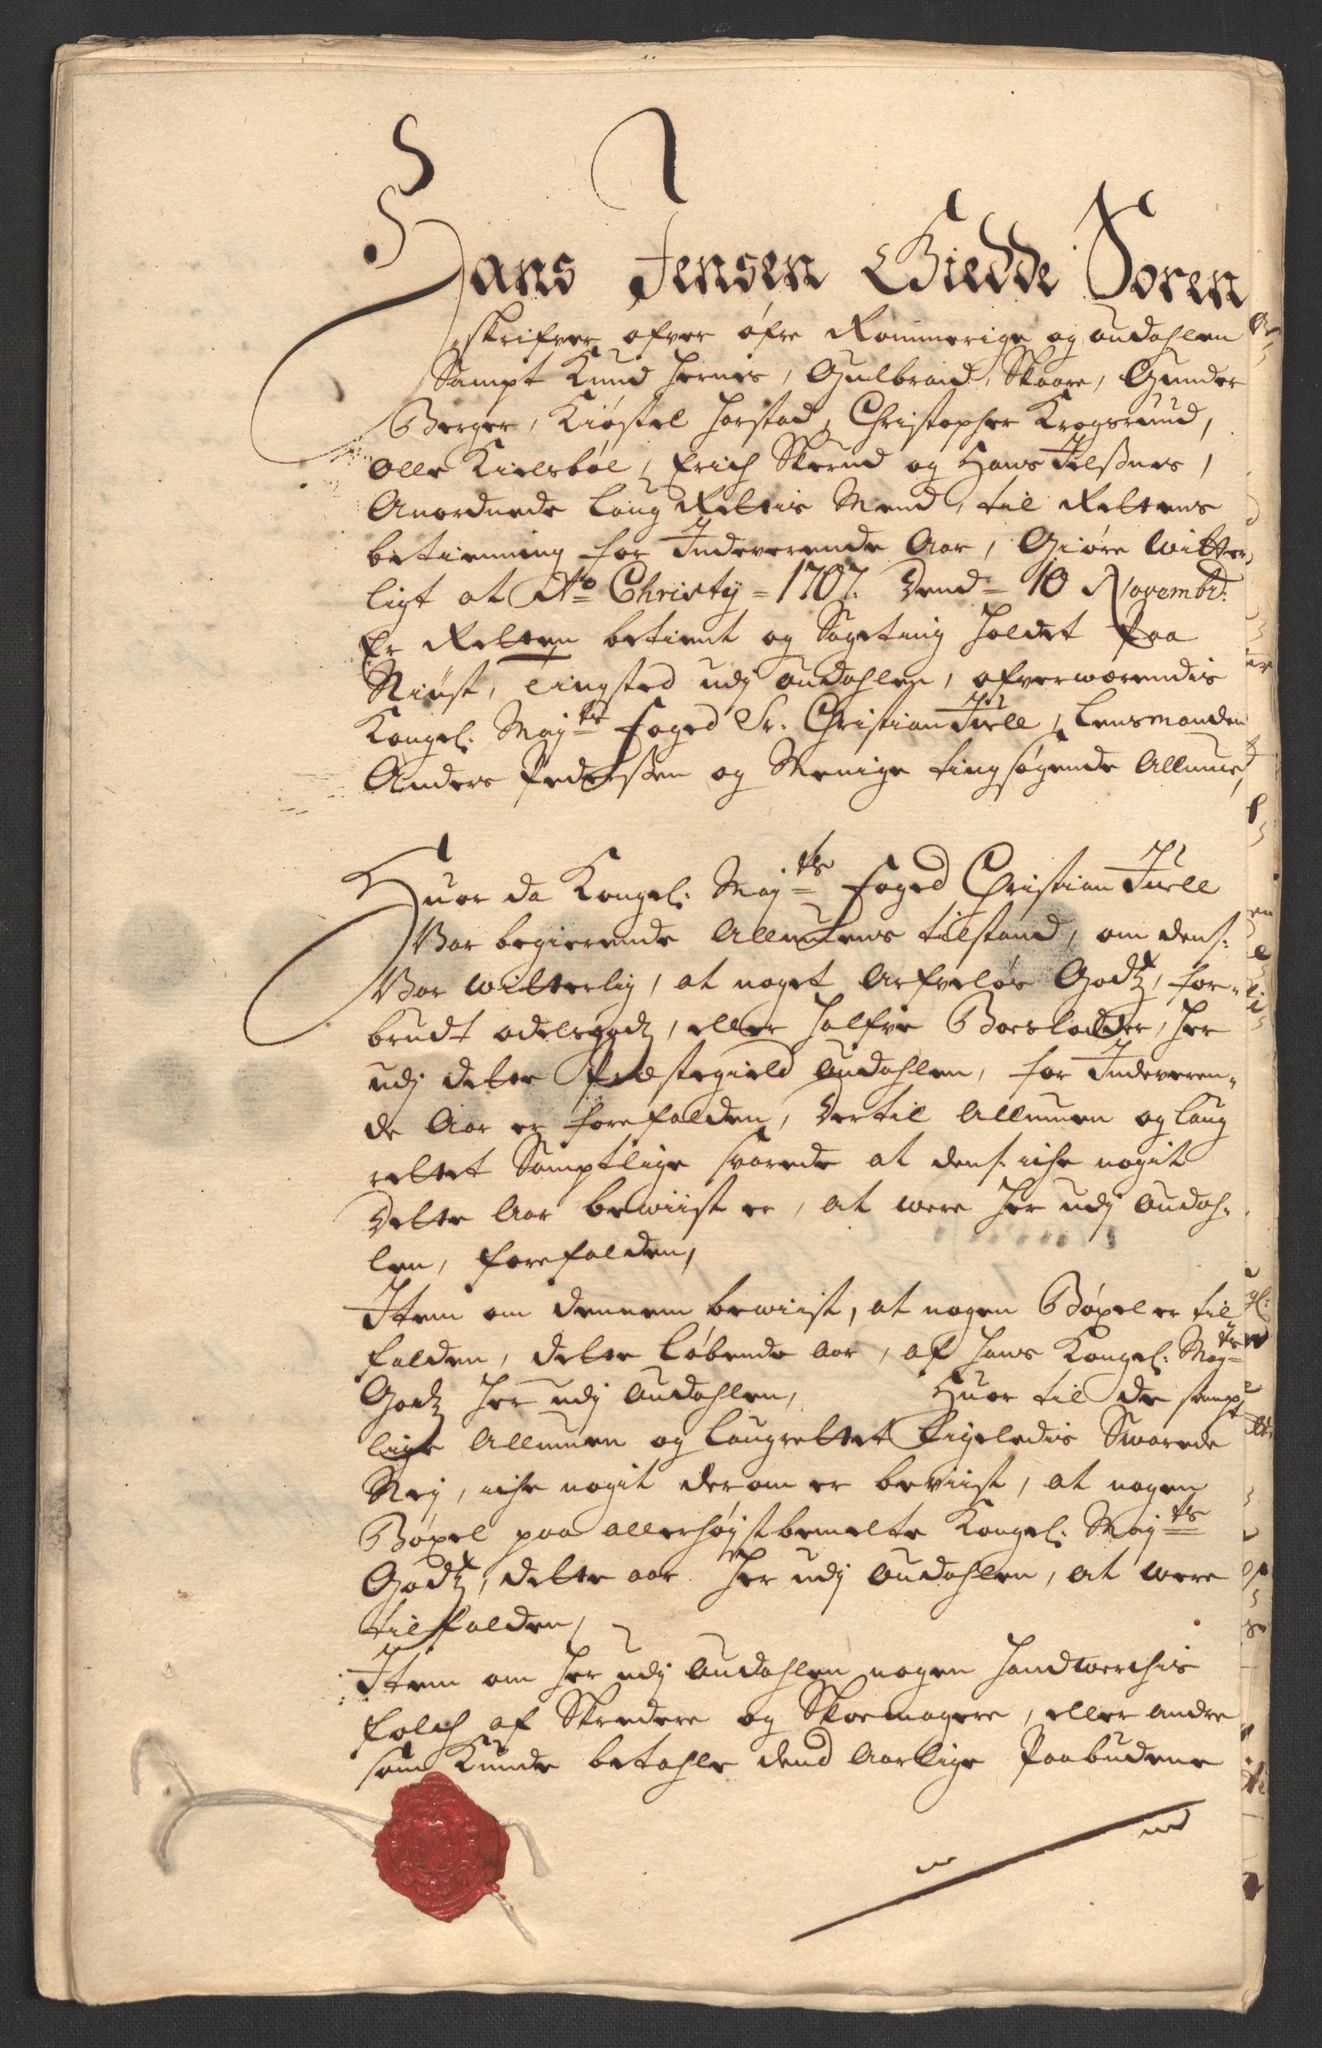 Hans Jensen Giedde Soren
skrifver ofver øfre Rommerige og Oudahlen
Sampt Knud Hernes, Gulbrand Skaare, Gunder
Berger, Kiøstel Horstad, Christopher Krogsruud,
Olle Kielsbøl, Erich Skerud og Hans Filßnes,
Anordnede Laug Rettis Mend, til Rettens
betienning for Indeverende Aar, Giøre Witter
ligt at Ao Christy = 1707. Dend = 10 Novembr:
Er Retten betient og Sageting Holdet Paa
Niust, Tingsted udj Oudahlen, ofverwærendis
Kongel: Maj:ts Foged Sr. Christian Juell, Lensmanden
Anders Pederßen og Menige tingsøgende Allmue,
Huor da Kongel: Maj:ts Foged Christian Juell
War begierende Allmuens tilstand, om dens:
War witterlig, at noget Arfveløs Godtz, for-
brudt odelsgodtz, eller Halfve Boeslodder, Her
udj dette Præstegield Oudahlen, for Indeveren-
de Aar er forefalden, Dertil Allmuen og Laug
rettet Samptlige svarede at dens: iche nogit
Dette Aar bewiist er, at were Her udj Oudah-
len, forefalden,
Item om dennem bewiist, at nogen Bøxel er til
falden, dette Løbende Aar, af Hans Kongel: Maj:ts
Godtz Her udj Oudahlen, Huor til de sampt
lige Allmuen og Laugrettet Ligeledis Swarede
Nej, iche nogit derom er beviist, at nogen
Bøxel paa allerhøjstbemelte Kongel: Maj:ts
Godtz, dette aar Her udj Oudahlen, at were
tilfalden,
Item om Her udj Oudahlen nogen Handwerchis
folch af Skredere og Skoemagere, eller andre
som Kunde betahle dend Aarlige Paabudene